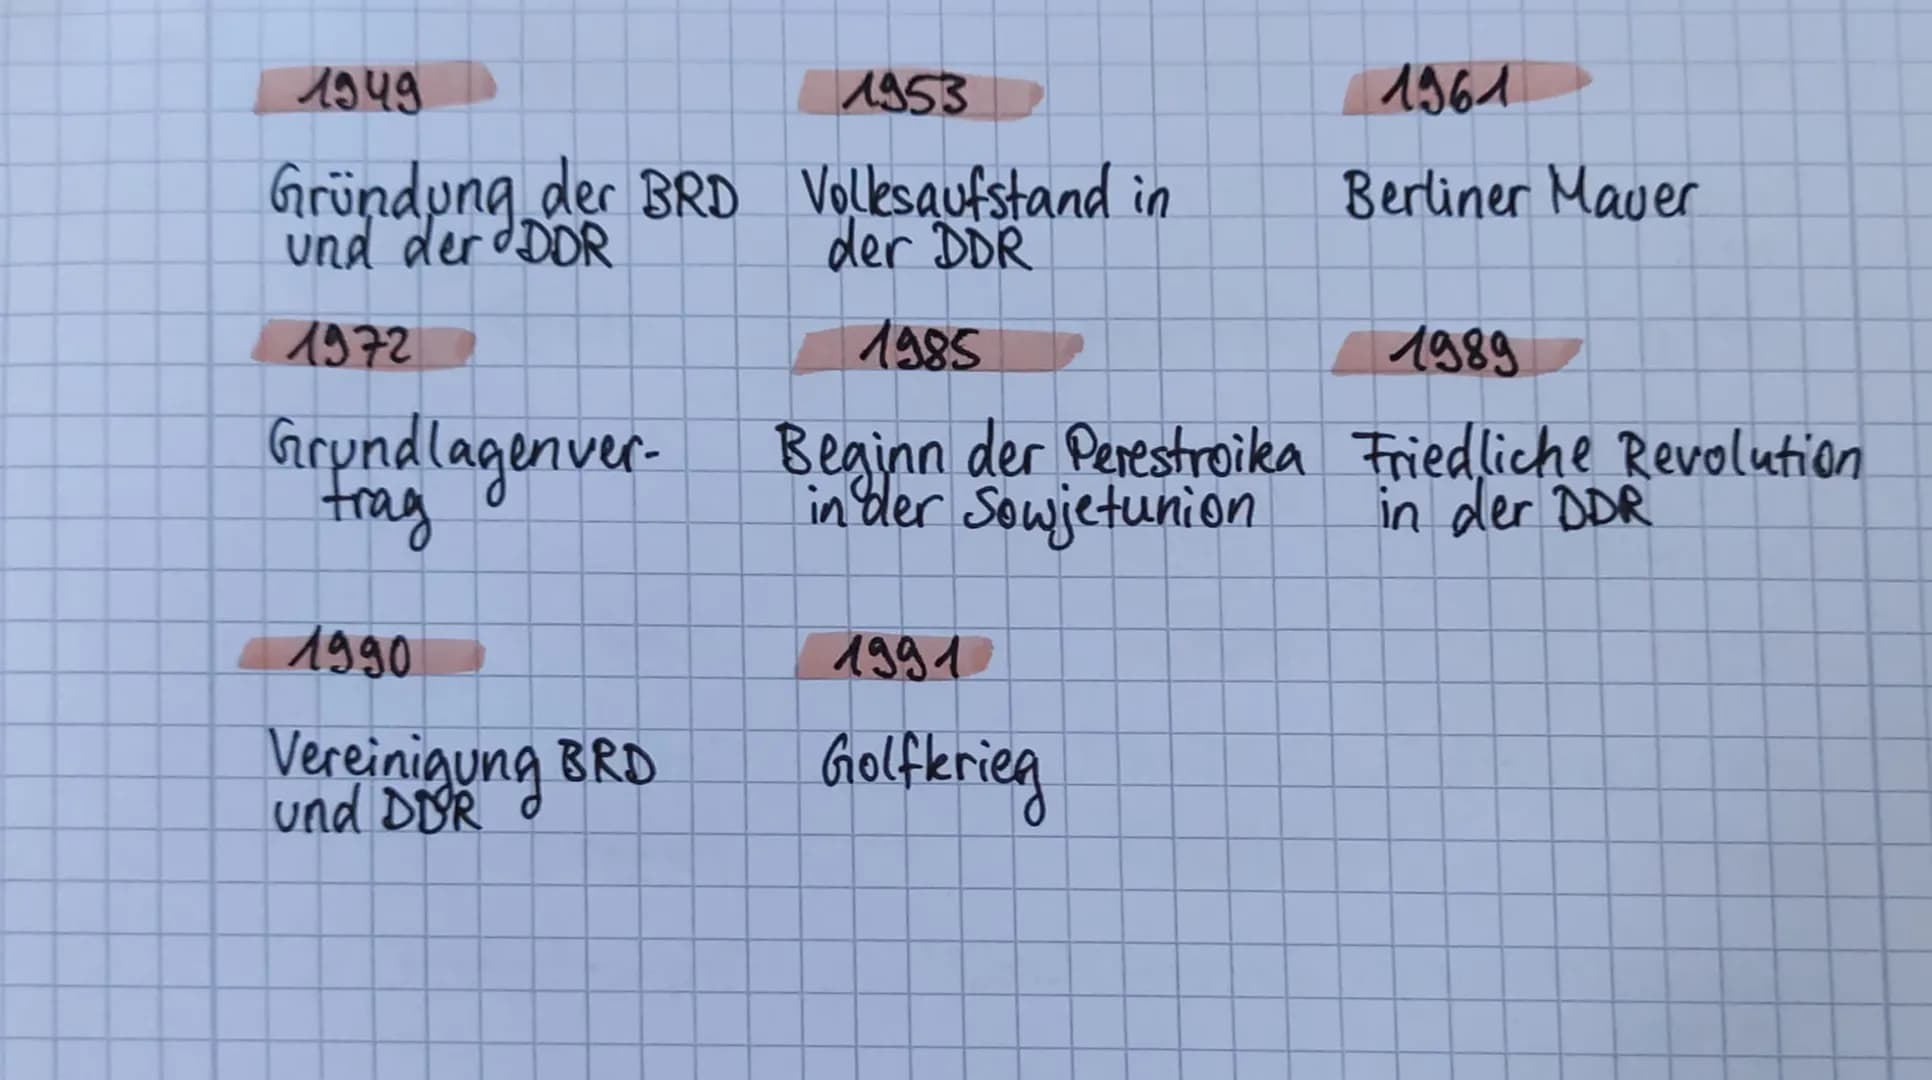 1949
Gründung der BRD
und der DDR
1953
Volksaufstand in
der DDR
1961
Berliner Mauer
1972
Grundlagenver-
trag
1985
Beginn der Perestroika
in der Sowjetunion
1989
Friedliche Revolution
in der DDR
1990
Vereinigung BRD
und DDR
1991
Golfkrieg